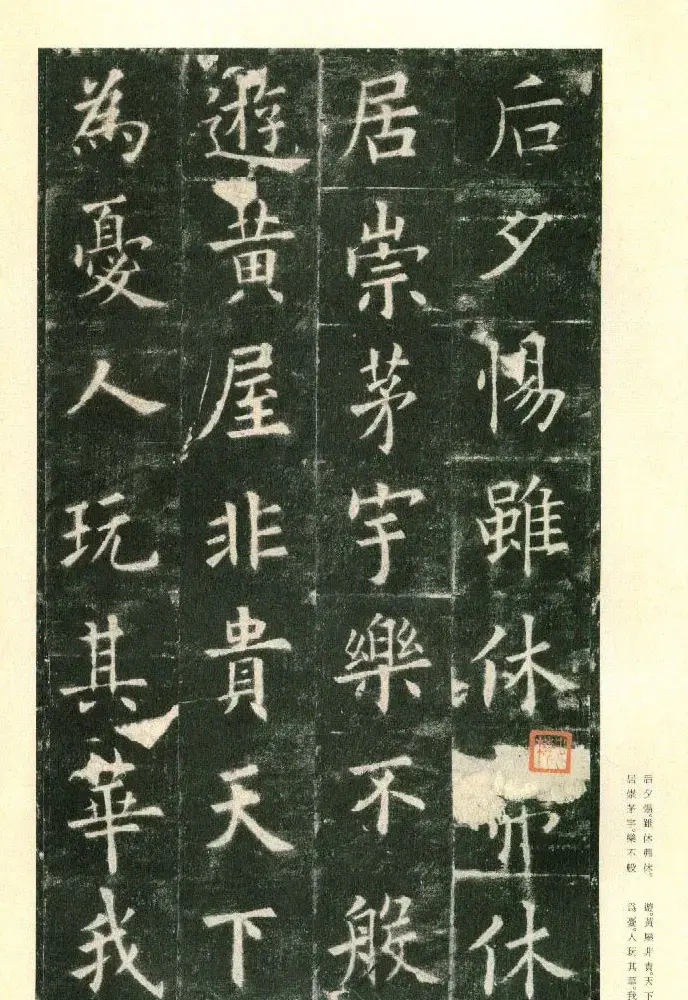 后夕惕雖休弗休
居崇茅宇樂不般
遊黃屋非貴天下
為憂人玩其華我
后夕惕。雖休弗休。
居崇茅宇。樂不般
遊。黃屋非貴。天下
為憂。人玩其華。我